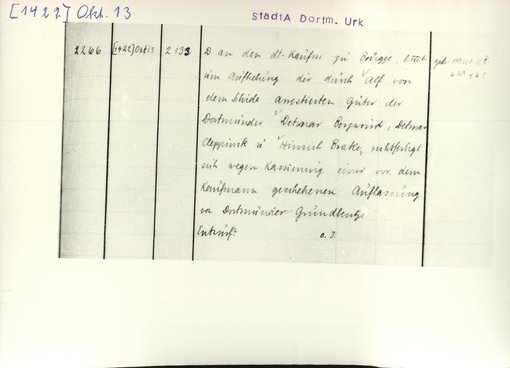 [1422] Okt. 13
StadtA Dortm. Urk
2266 [1422] Okt 13 2133 D an den dt. Kaufm. zu Brügge, bittet
um Aufhebung der durch Alf von
dem Schide arrestierten Güter der
Dortmunder Detmar Bersword, Detmar
Cleppinck u. Hinrich Brake, rechtfertigt
sich wegen Kassierung einer vor dem
Kaufmann geschehenen Auflassung
von Dortmunder Grundbesitz
Entwurf. o. J.
gedr. Hans UB.
6 Nr